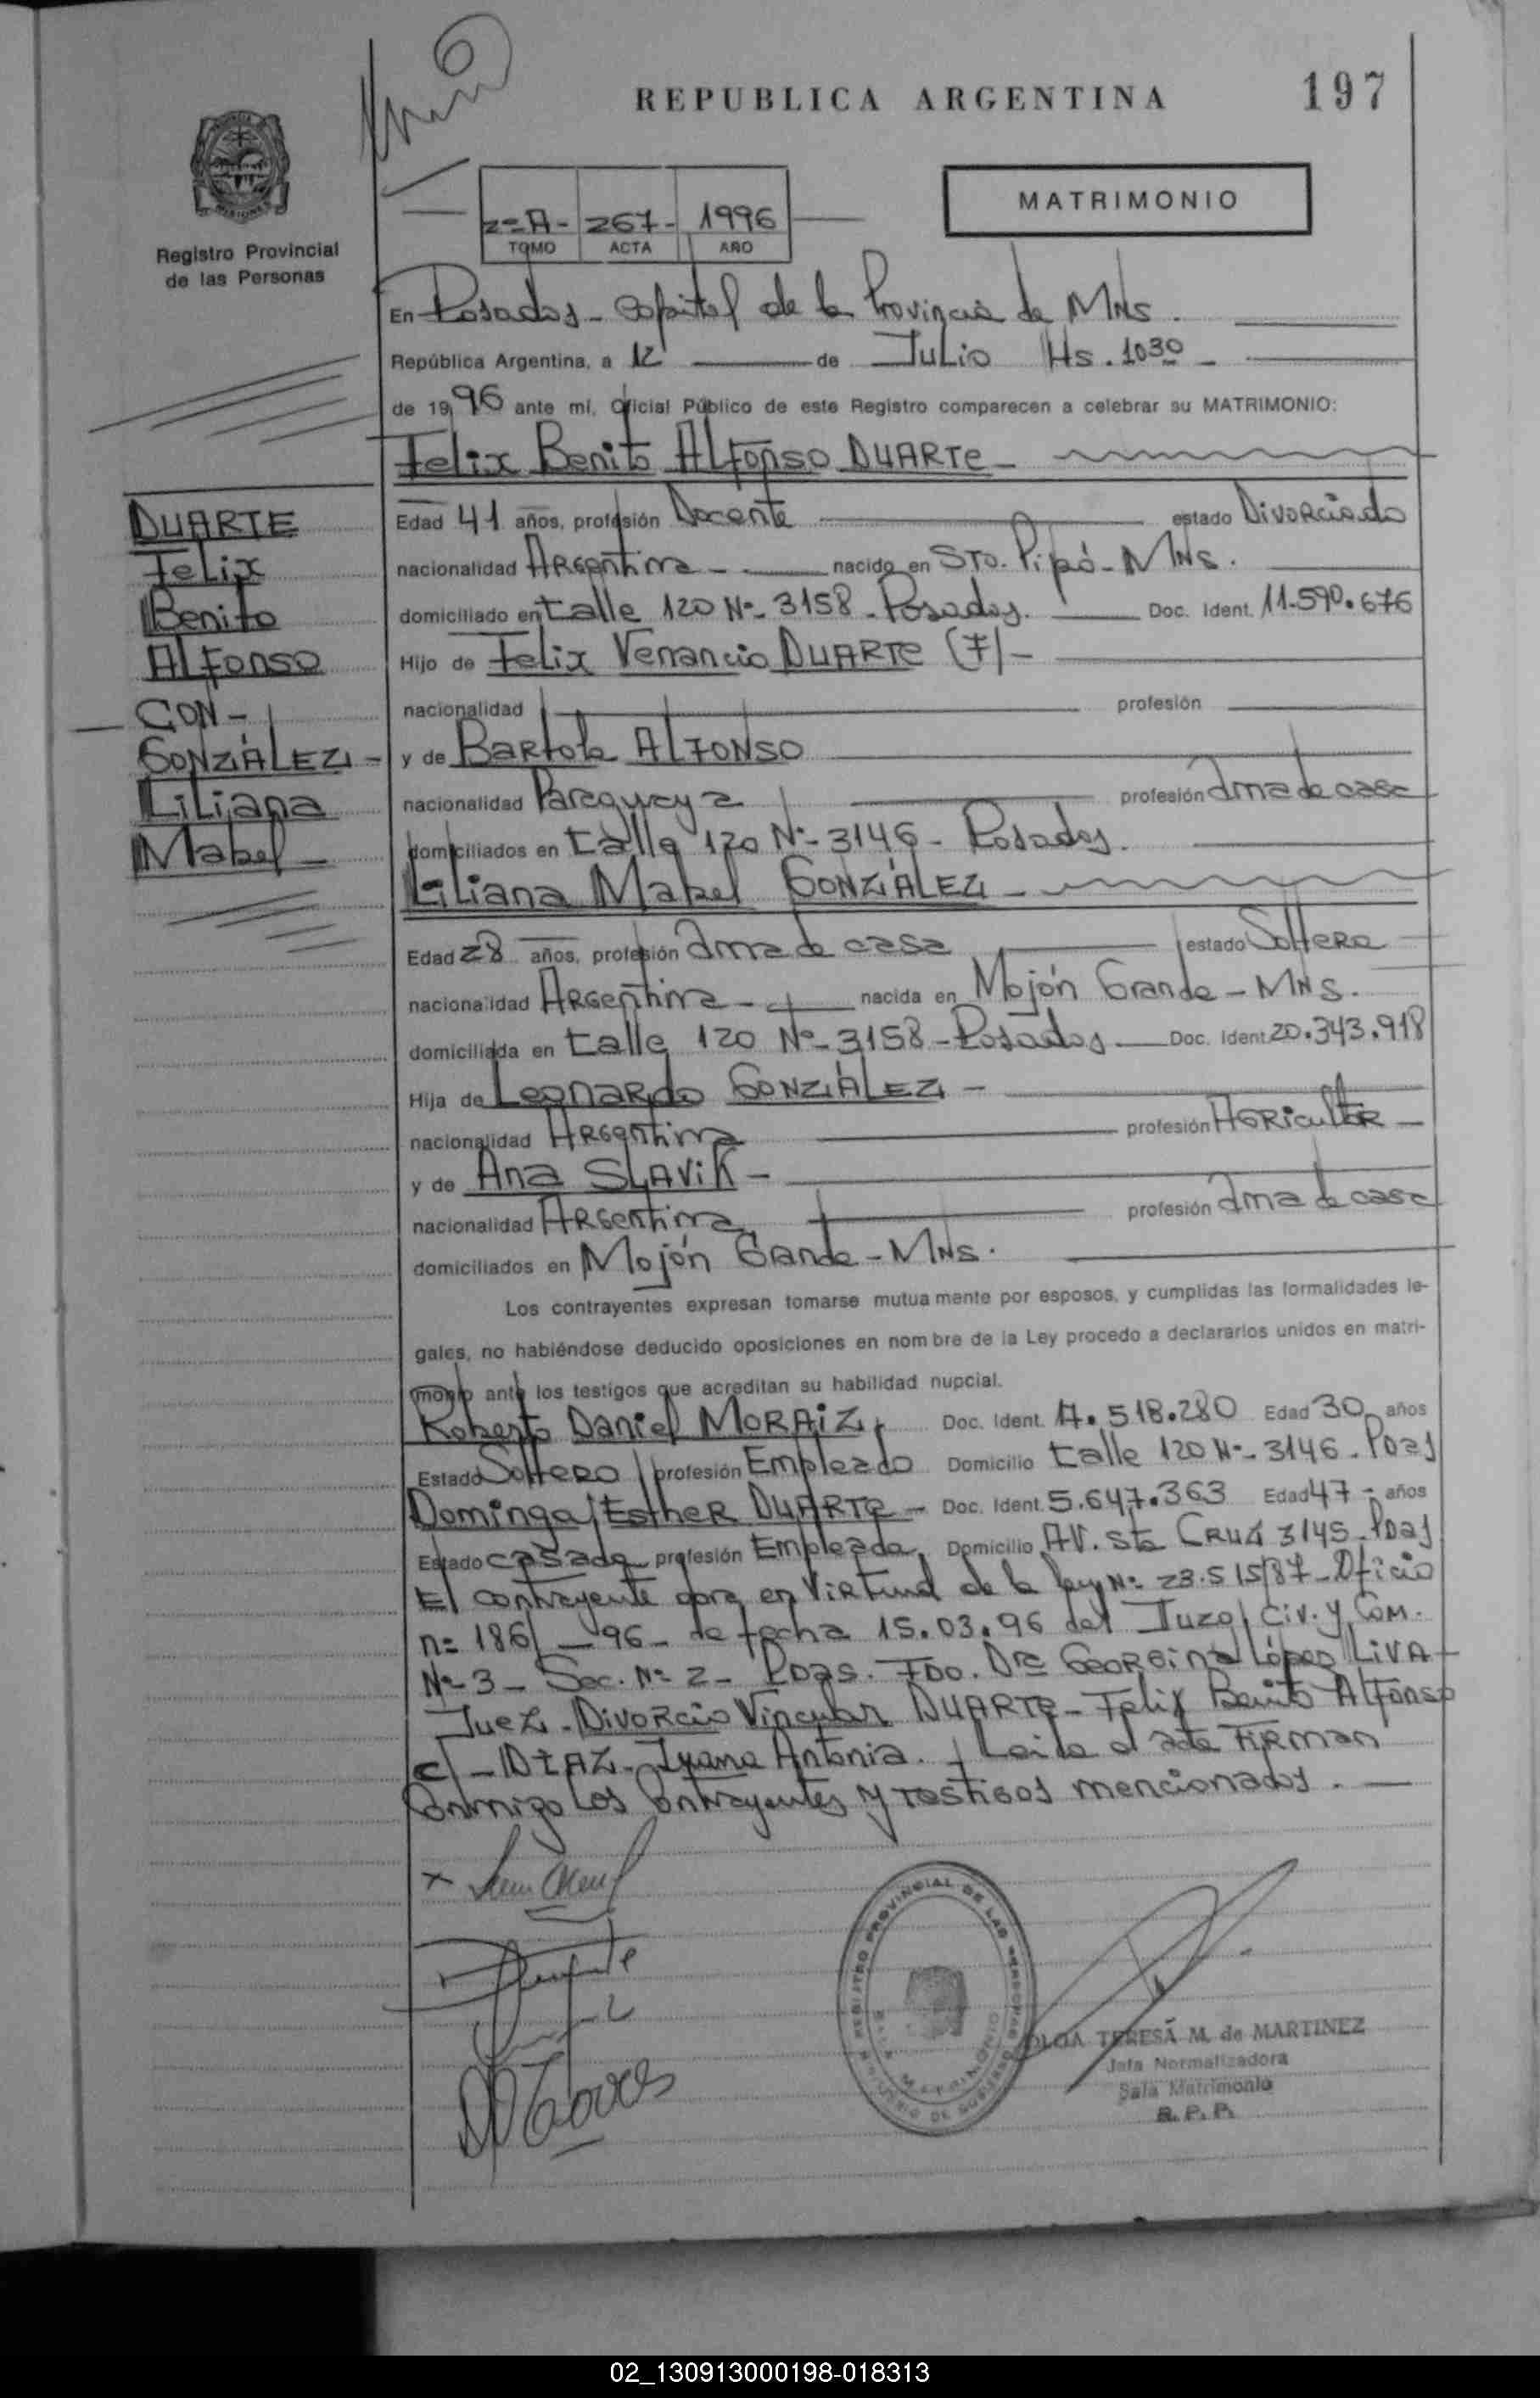 REPUBLICA ARGENTINA
197
Registro Provincial
de las Personas
2=A- 267- 1996
TOMO ACTA AÑO
MATRIMONIO
En Posadas - Capital de la Provincia de MNS.
República Argentina, a 12 de Julio Hs. 1030 -
de 1996 ante mí, Oficial Público de este Registro comparecen a celebrar su MATRIMONIO:
Felix Benito Alfonso DUARTE -
DUARTE
Felix
Benito
Alfonso
CON -
GONZALEZ -
Liliana
Mabel -
Edad 41 años, profesión Docente estado Divorciado
nacionalidad Argentina - nacido en Sto. Pipó - MNS.
domiciliado en Calle 120 Nº 3158 - Posadas. Doc. Ident. 11.590.676
Hijo de Felix Venancio DUARTE (F) -
nacionalidad profesión
y de Bartola ALFONSO
nacionalidad Paraguaya profesión ama de casa
domiciliados en Calle 120 Nº 3146 - Posadas.
Liliana Mabel GONZALEZ -
Edad 28 años, profesión ama de casa estado Soltera
nacionalidad Argentina - nacida en Mojón Grande - MNS.
domiciliada en Calle 120 Nº 3158 - Posadas Doc. Ident. 20.343.918
Hija de Leonardo GONZALEZ -
nacionalidad Argentina profesión Agricultor -
y de Ana SLAVIK -
nacionalidad Argentina profesión ama de casa
domiciliados en Mojón Grande - MNS.
Los contrayentes expresan tomarse mutuamente por esposos, y cumplidas las formalidades le-
gales, no habiéndose deducido oposiciones en nombre de la Ley procedo a declararlos unidos en matri-
monio ante los testigos que acreditan su habilidad nupcial.
Roberto Daniel MORAIZ, Doc. Ident. 518.280 Edad 30 años
Estado Soltero profesión Empleado Domicilio Calle 120 Nº 3146 - Pdas
Dominga Esther DUARTE - Doc. Ident. 5.647.363 Edad 47 - años
Estado casada profesión Empleada, Domicilio AV. Sta CRUZ 3145 - Pdas
El contrayente en Virtud de la ley Nº 23.515/87 - Oficio
nº 186/ - 96 - de fecha 15.03.96 del Juzg. Civ. y Com.
Nº 3 - Sec. Nº 2 - Pdas. FDO. Dra Georgina López LIVA -
Juez - Divorcio Vincular DUARTE - Felix Benito Alfonso
c/ - DIAZ - Juana Antonia. Leida el acta Firman
conmigo los contrayentes y testigos mencionados.
REGISTRO PROVINCIAL DE LAS PERSONAS
MINISTERIO DE GOBIERNO
SALA MATRIMONIO
OLGA TERESA M. de MARTINEZ
Jefa Normalizadora
Sala Matrimonio
R. P. P.
02_130913000198-018313